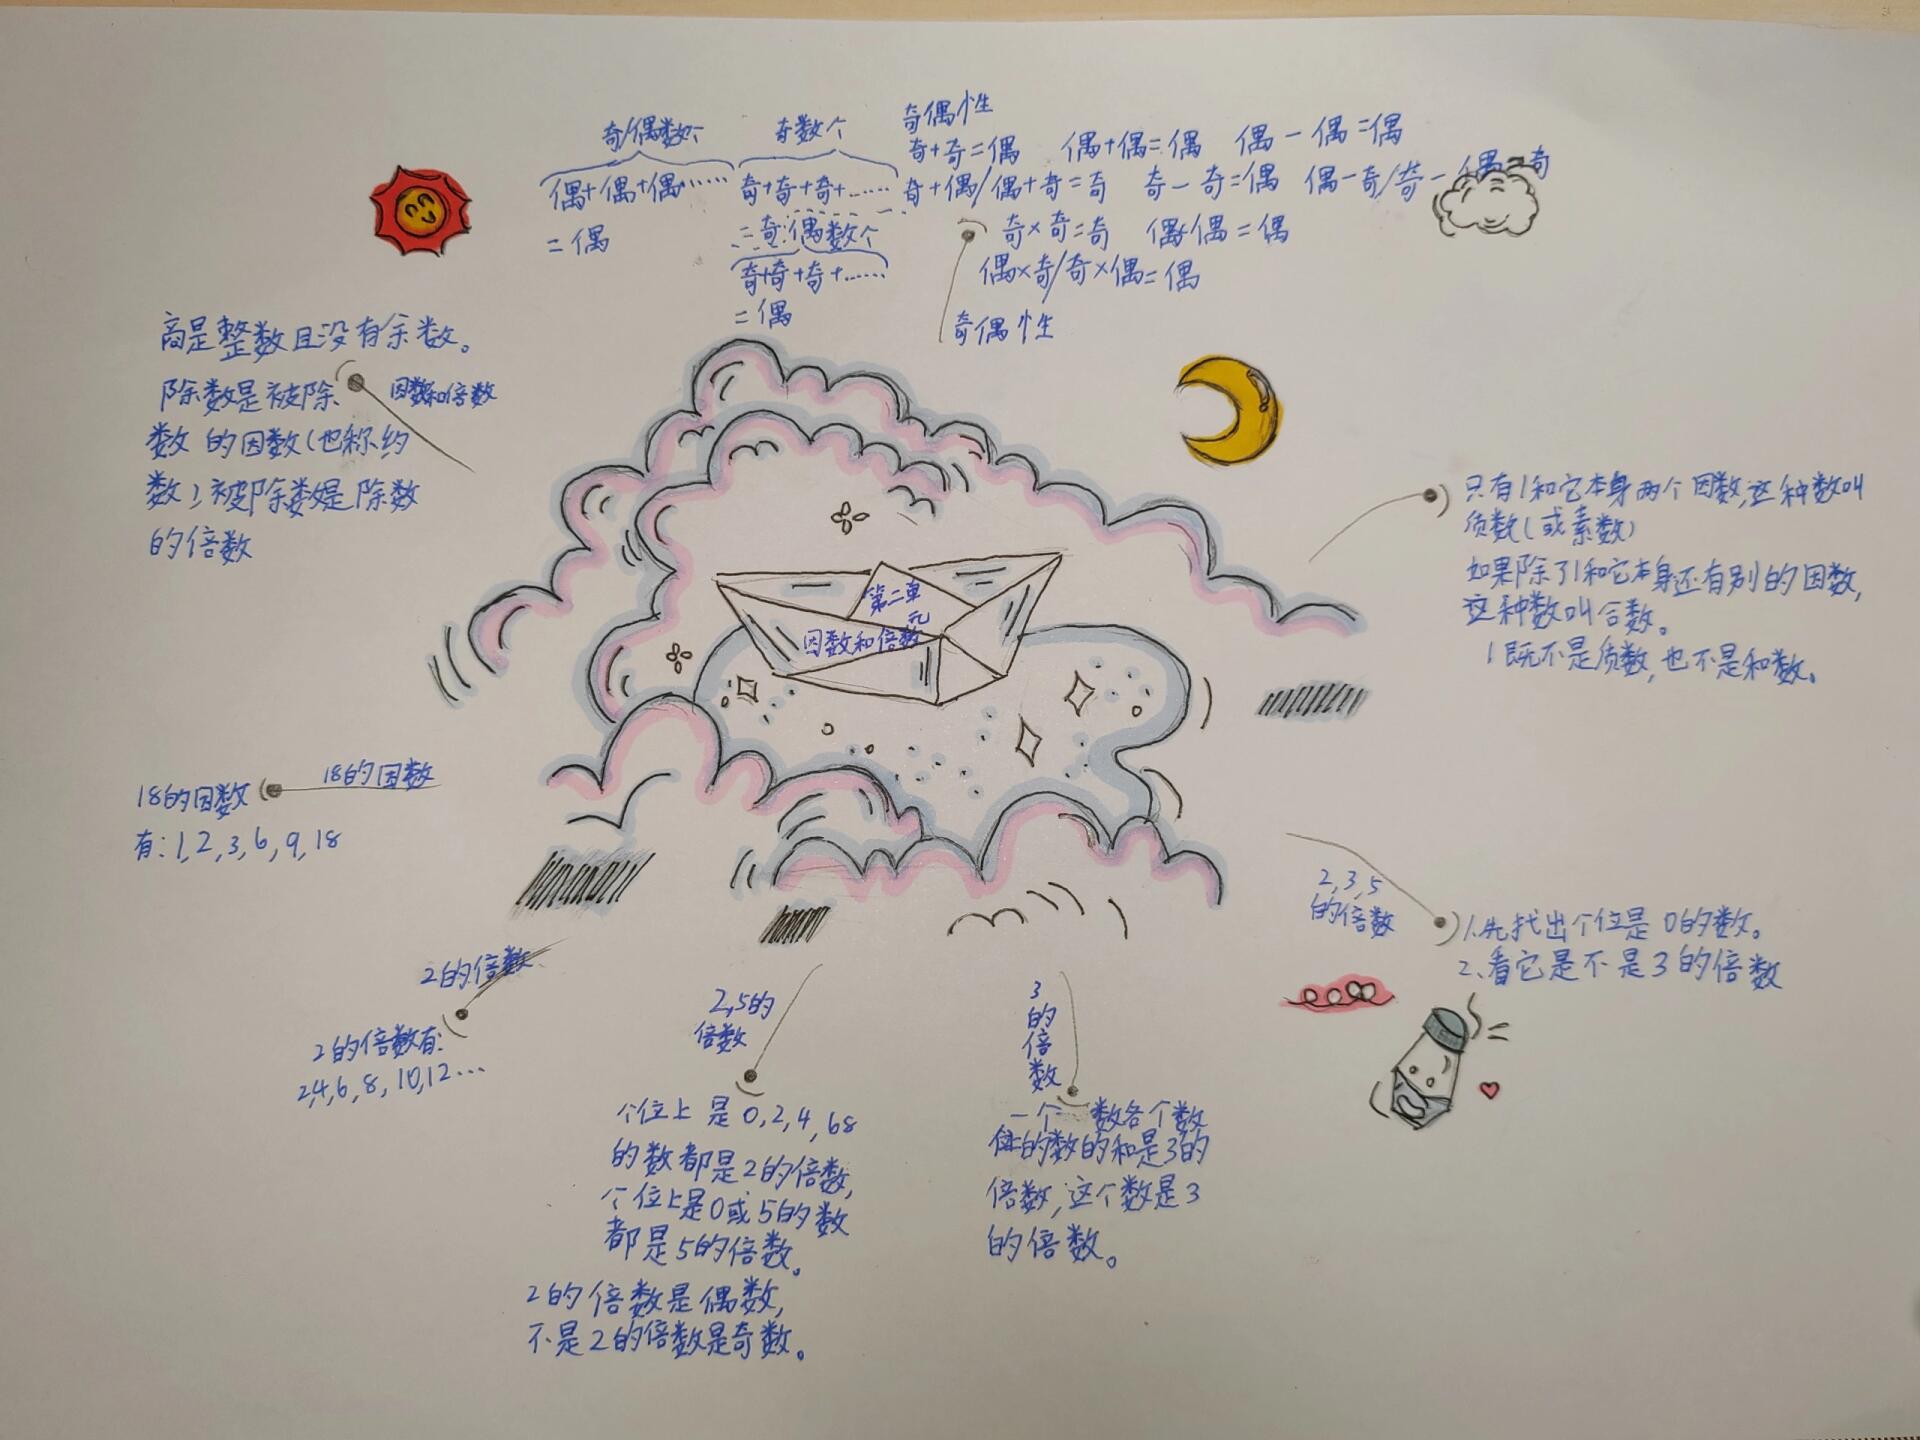 奇/偶数个
偶+偶+偶……
=偶
奇数个
奇+奇+奇+……
=奇
偶数个
奇+奇+奇+……
=偶
奇偶性
奇+奇=偶 偶+偶=偶 偶-偶=偶
奇+偶/偶+奇=奇 奇-奇=偶 偶-奇/奇-偶=奇
奇×奇=奇 偶×偶=偶
偶×奇/奇×偶=偶
奇偶性
商是整数且没有余数。
除数是被除
数的因数(也称约
数),被除数是除数
的倍数
因数和倍数
第二单
元
因数和倍数
只有1和它本身两个因数,这种数叫
质数(或素数)
如果除了1和它本身还有别的因数,
这种数叫合数。
1既不是质数,也不是和数。
18的因数
18的因数
有:1,2,3,6,9,18
2,3,5
的倍数
1.先找出个位是0的数。
2、看它是不是3的倍数
2的倍数
2的倍数有:
2,4,6,8,10,12…
2,5的
倍数
个位上是0,2,4,68
的数都是2的倍数,
个位上是0或5的数
都是5的倍数。
2的倍数是偶数,
不是2的倍数是奇数。
3
的
倍
数
一个数各个数
位的数的和是3的
倍数,这个数是3
的倍数。